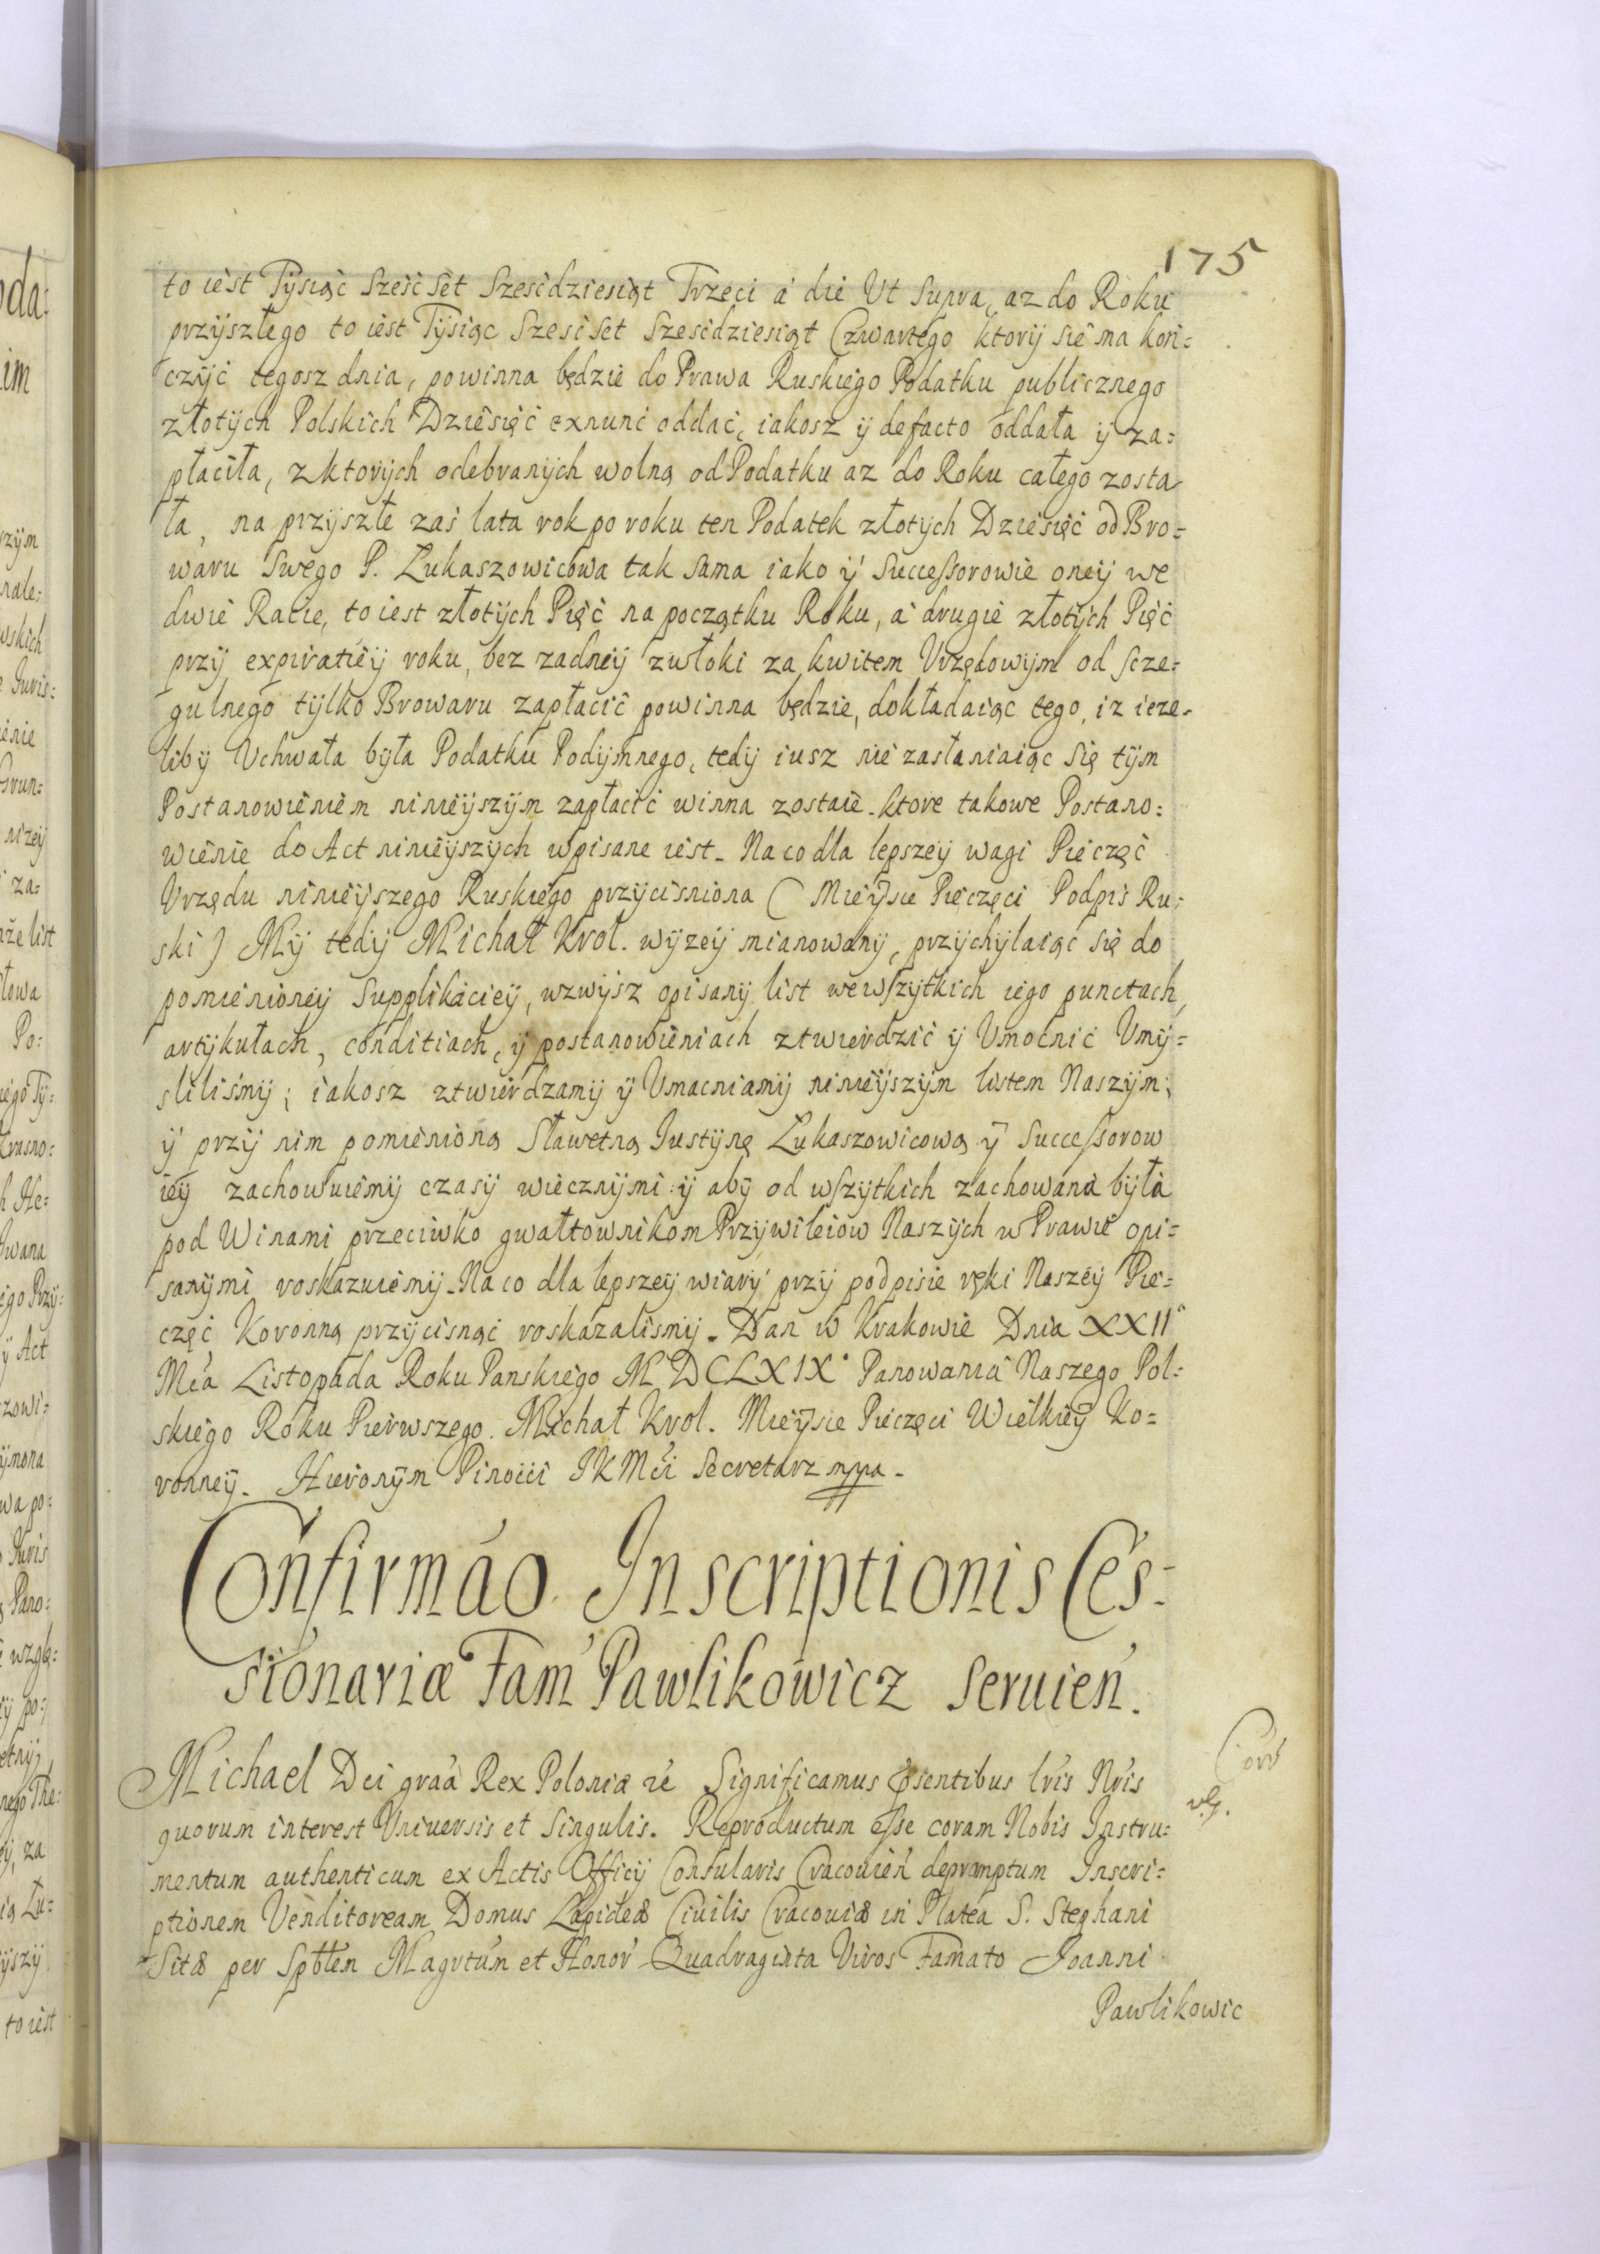 175
to iest Tysiąc Sześćset Sześćdziesiąt Trzeci á die Vt Supra, az do Roku
przyszłego to iest Tysiąc Sześćset Sześćdziesiąt Czwartego ktorÿ się ma koń=
czÿć tegosz dnia, powinna będzie do Prawa Ruskiego Podatku publicznego
złotÿch Polskich Dziesięć exnunc oddać, iakosz ÿ defacto oddała ÿ za=
płaciła, z ktorÿch odebranÿch wolną od Podatku az do Roku całego zosta
ła, na przÿszłe zaś lata rok po roku ten Podatek złotÿch Dziesięć od Bro=
waru Swego P. Łukaszowicowa tak sama iako ÿ Successorowie oneÿ we
dwie Racie, to iest złotÿch Pięć na początku Roku, a drugie złotÿch Pięć
przÿ expiratieÿ roku, bez zadneÿ zwłoki za kwitem Vrzędowÿm od scze=
gulnego tÿlko Browaru zapłacić powinna będzie, dokładaiąc tego, iz ieze=
liby Vchwała była Podatku Podÿmnego, tedÿ iusz nie zasłaniaiąc się tÿm
Postanowieniem ninieÿszÿm zapłacić winna zostaie. ktore takowe Postano=
wienie do Act ninieÿszÿch wpisane iest. Na co dla lepszeÿ wagi Pieczęć
Vrzędu ninieÿszego Ruskiego przÿcisniona ( Mieÿsce Pieczęci Podpis Ru=
ski ) Mÿ tedÿ Michał Krol. wÿzeÿ mianowanÿ, przÿchÿlaiąc się do
pomienioneÿ Supplikacieÿ, wzwÿsz opisanÿ list we wszÿtkich iego punctach,
artÿkułach, conditiach, ÿ postanowieniach ztwierdzić ÿ Vmocnić Vmÿ=
sliliśmÿ; iakosz ztwierdzamÿ ÿ Vmacniamÿ ninieÿszÿm listem Naszÿm;
ÿ przÿ nim pomienioną Sławetną Justÿnę Łukaszowicową ÿ Successorow
ieÿ zachowuiemÿ czasÿ wiecznÿmi ÿ abÿ od wszÿtkich zachowana bÿła
pod Winami przeciwko gwałtownikom Przÿwileiow Naszÿch w Prawie opi=
sanÿmi roskazuiemÿ. Na co dla lepszeÿ wiarÿ przÿ podpisie ręki Naszeÿ Pie=
częć Koronną przÿcisnąć roskazalismÿ. Dan w Krakowie Dnia XXII°
Mca Listopada Roku Panskiego MDCLXIX° Panowania Naszego Pol=
skiego Roku Pierwszego. Michał Krol. Mieÿsce Pieczęci Wielkieÿ Ko=
ronneÿ. Hieronÿm Pinocci JKMci Secretarz mppa.
Confirmáo Inscriptionis Ces=
sionariæ Fam Pawlikowicz seruień.
Michael Dei graã Rex Poloniæ &c Significamus p̃sentibus lris Nris
quorum interest Vniuersis et Singulis. Reproductum esse coram Nobis Instru=
mentum authenticum ex Actis Officÿ Consularis Cracouień depromptum Inscri=
ptionem Venditoream Domus Lapideæ Ciuilis Cracouiæ in Platea S. Stephani
Sitæ per Spblem Magrtum et Honor Quadraginta Viros Famato Joanni
Pawlikowic